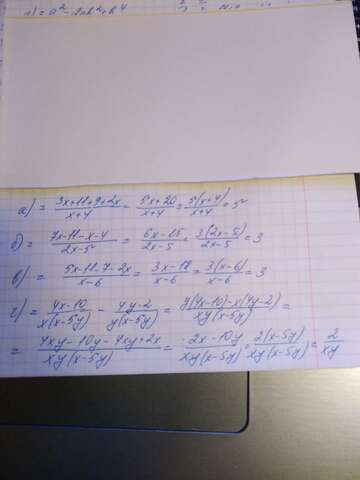 а) = (3x+11+9+2x)/(x+4) = (5x+20)/(x+4) = 5(x+4)/(x+4) = 5
б) = (7x-11-x-4)/(2x-5) = (6x-15)/(2x-5) = 3(2x-5)/(2x-5) = 3
в) = (5x-11-7-2x)/(x-6) = (3x-18)/(x-6) = 3(x-6)/(x-6) = 3
г) = (4x-10)/(x(x-5y)) - (4y-2)/(y(x-5y)) = (y(4x-10)-x(4y-2))/(xy(x-5y)) =
= (4xy-10y-4xy+2x)/(xy(x-5y)) = (2x-10y)/(xy(x-5y)) = 2(x-5y)/(xy(x-5y)) = 2/(xy)